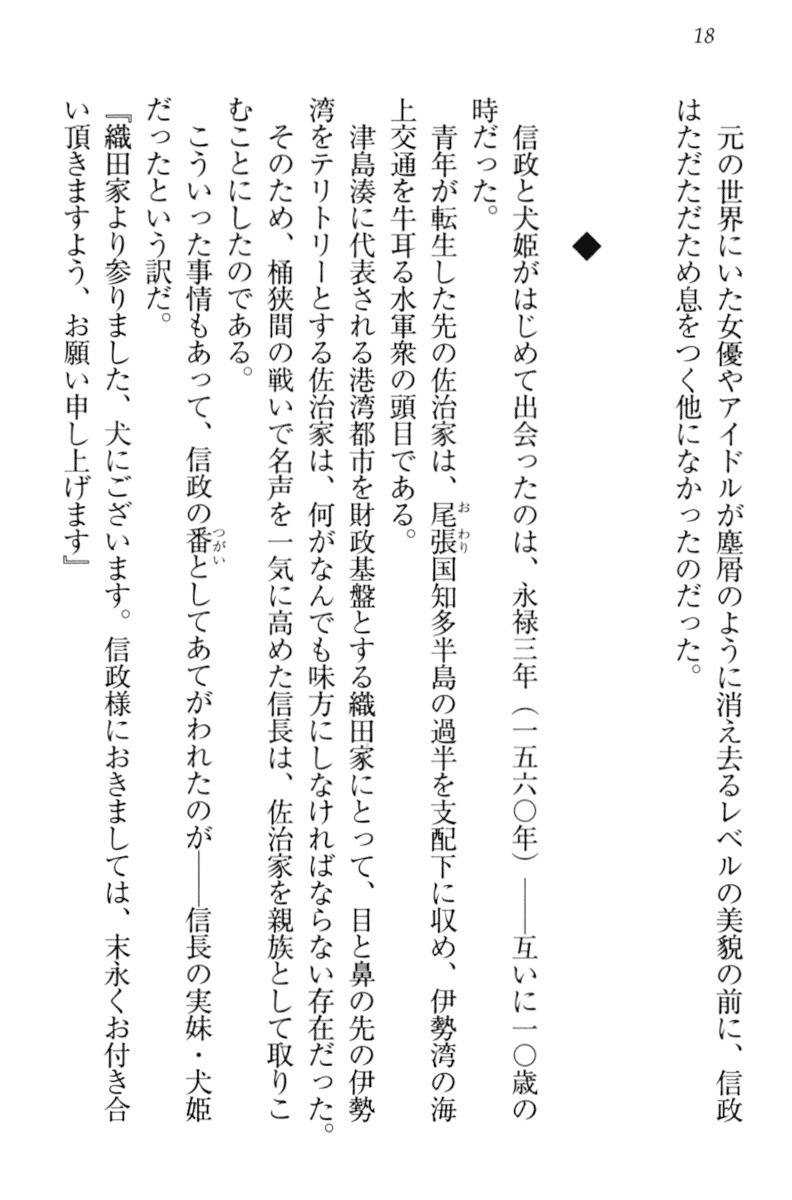 18
元の世界にいた女優やアイドルが塵屑のように消え去るレベルの美貌の前に、信政
はただただため息をつく他になかったのだった。
◆
信政と犬姫がはじめて出会ったのは、永禄三年（一五六〇年）――互いに一〇歳の
時だった。
青年が転生した先の佐治家は、尾張国知多半島の過半を支配下に収め、伊勢湾の海
上交通を牛耳る水軍衆の頭目である。
津島湊に代表される港湾都市を財政基盤とする織田家にとって、目と鼻の先の伊勢
湾をテリトリーとする佐治家は、何がなんでも味方にしなければならない存在だった。
そのため、桶狭間の戦いで名声を一気に高めた信長は、佐治家を親族として取りこ
むことにしたのである。
こういった事情もあって、信政の番としてあてがわれたのが――信長の実妹・犬姫
だったという訳だ。
『織田家より参りました、犬にございます。信政様におきましては、末永くお付き合
い頂きますよう、お願い申し上げます』
おわり
つがい